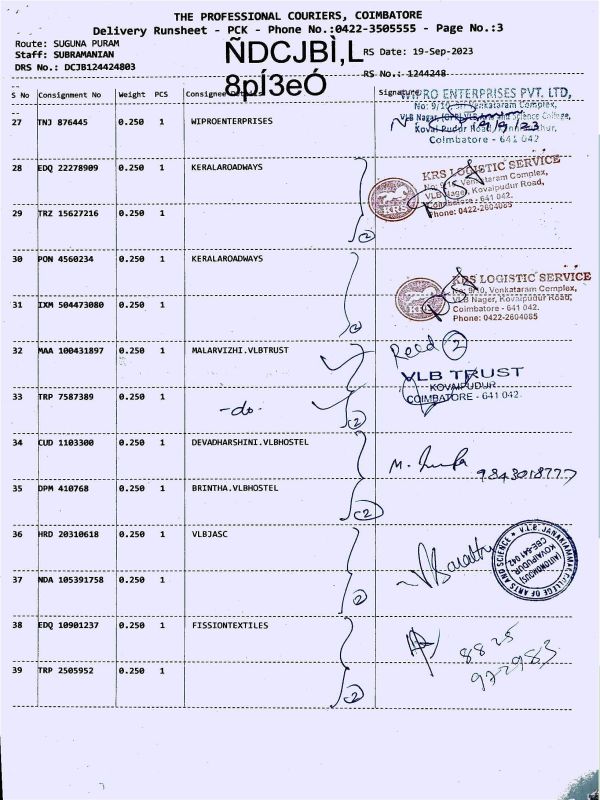 THE PROFESSIONAL COURIERS, COIMBATORE
Delivery Runsheet - PCK - Phone No.:0422-3505555 - Page No.:3
Route: SUGUNA PURAM
Staff: SUBRAMANIAN
DRS No.: DCJB124424803
ÑDCJBÌ,L
8pÍ3eÓ
RS Date: 19-Sep-2023
RS No.: 1244248
S No Consignment No Weight PCS Consignee Details Signature
WIPRO ENTERPRISES PVT. LTD,
No: 9/10, Sri Venkataram Complex,
VLB Nagar, Science College,
Kovai Pudur Road,
Coimbatore - 641 042
19/9/23
27 TNJ 876445 0.250 1 WIPROENTERPRISES
28 EDQ 22278909 0.250 1 KERALAROADWAYS
KRS LOGISTIC SERVICE
No: 9/10, Venkataram Complex,
VLB Nager, Kovaipudur Road,
Coimbatore - 641 042.
Phone: 0422-2604085
KRS
29 TRZ 15627216 0.250 1
2
30 PON 4560234 0.250 1 KERALAROADWAYS
KRS LOGISTIC SERVICE
No: 9/10, Venkataram Complex,
VLB Nager, Kovaipudur Road,
Coimbatore - 641 042.
Phone: 0422-2604085
31 IXM 504473080 0.250 1
2
32 MAA 100431897 0.250 1 MALARVIZHI.VLBTRUST
Recd 2
VLB TRUST
KOVAIPUDUR
COIMBATORE - 641 042.
33 TRP 7587389 0.250 1 -do-
2
34 CUD 1103300 0.250 1 DEVADHARSHINI.VLBHOSTEL
9843018777
35 DPM 410768 0.250 1 BRINTHA.VLBHOSTEL
2
36 HRD 20310618 0.250 1 VLBJASC
V.L.B. JANAKIAMMAL COLLEGE OF ARTS AND SCIENCE
(AUTONOMOUS)
KOVAIPUDUR
CBE-641 042.
37 NDA 105391758 0.250 1
2
38 EDQ 10901237 0.250 1 FISSIONTEXTILES
8825
972983
39 TRP 2505952 0.250 1
2